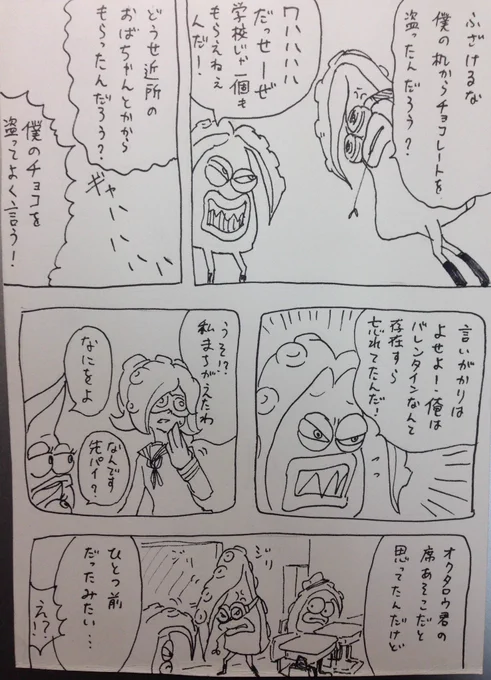 ふざけるな
僕の机からチョコレートを
盗ったんだろう？
ワハハハハ
だっせーぜ
学校じゃ一個も
もらえねぇ
んだ！
どうせ近所の
おばちゃんとかから
もらったんだろう？
ギャーハハハ
僕のチョコを
盗ってよく言う！
言いがかりは
よせよ！俺は
バレンタインなんて
存在すら
忘れてたんだ！
うそ！？
私まちがえたわ
なにをよ
なんです
先パイ？
オクタロウ君の
席あそこだと
思ってたんだけど
ジリ
ひとつ前
だったみたい…
え？！